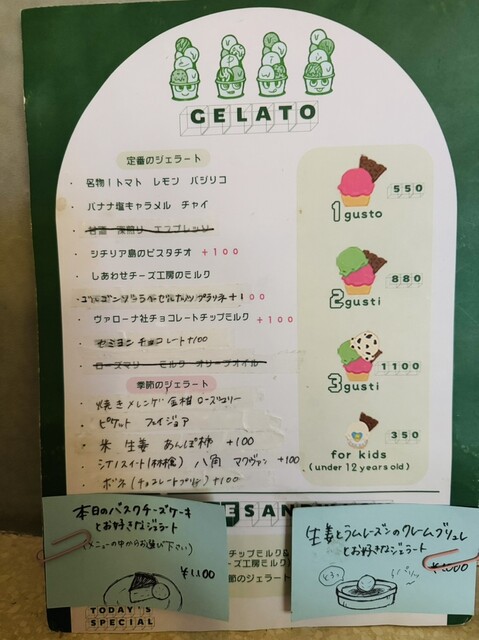 GELATO
定番のジェラート
・ 名物！トマト レモン バジリコ
・ バナナ塩キャラメル チャイ
・ 甘酒 深煎り エスプレッソ
・ シチリア島のピスタチオ +100
・ しあわせチーズ工房のミルク
+100
・ ヴァローナ社チョコレートチップミルク +100
・ セミヨンチョコレート +100
・ ローズマリー ミルク オリーブオイル
季節のジェラート
・ 焼きメレンゲ 金柑 ローズマリー
・ ピケット フェイジョア
・ 米 生姜 あんぽ柿 +100
・ シナノスイート 八角 マクヴァン +100
・ ボネ(チョコレートプリン) +100
550
1 gusto
880
2 gusti
1100
3 gusti
350
for kids
(under 12 years old)
本日のバスクチーズケーキ
とお好きなジェラート
(メニューの中からお選び下さい)
¥1,100
TODAY'S
SPECIAL
生姜とラムレーズンのクレームブリュレ
とお好きなジェラート
チップミルク&
工房のミルク)
節のジェラート